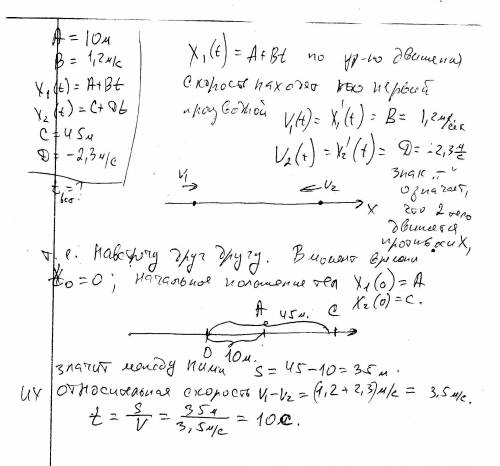 A = 10м
B = 1,2м/с
X₁(t) = A+Bt
X₂(t) = C+Dt
C = 45м
D = -2,3м/с
t = ?
X₁(t) = A+Bt по ур-ю движения
скорость находят по первой
производной V₁(t) = X₁'(t) = B = 1,2м/сек
V₂(t) = X₂'(t) = D = -2,3 м/с
знак „-"
означает,
что 2 тело
движется
против оси X,
V₁
V₂
X
т.е. навстречу друг другу. В момент времени
t₀ = 0; начальное положение тел X₁(0) = A
X₂(0) = C.
A 45м. C
O 10м.
значит между ними S = 45-10 = 35м.
их относительная скорость V₁-V₂ = (1,2+2,3)м/с = 3,5м/с.
t = S/V = 35м/3,5м/с = 10с.